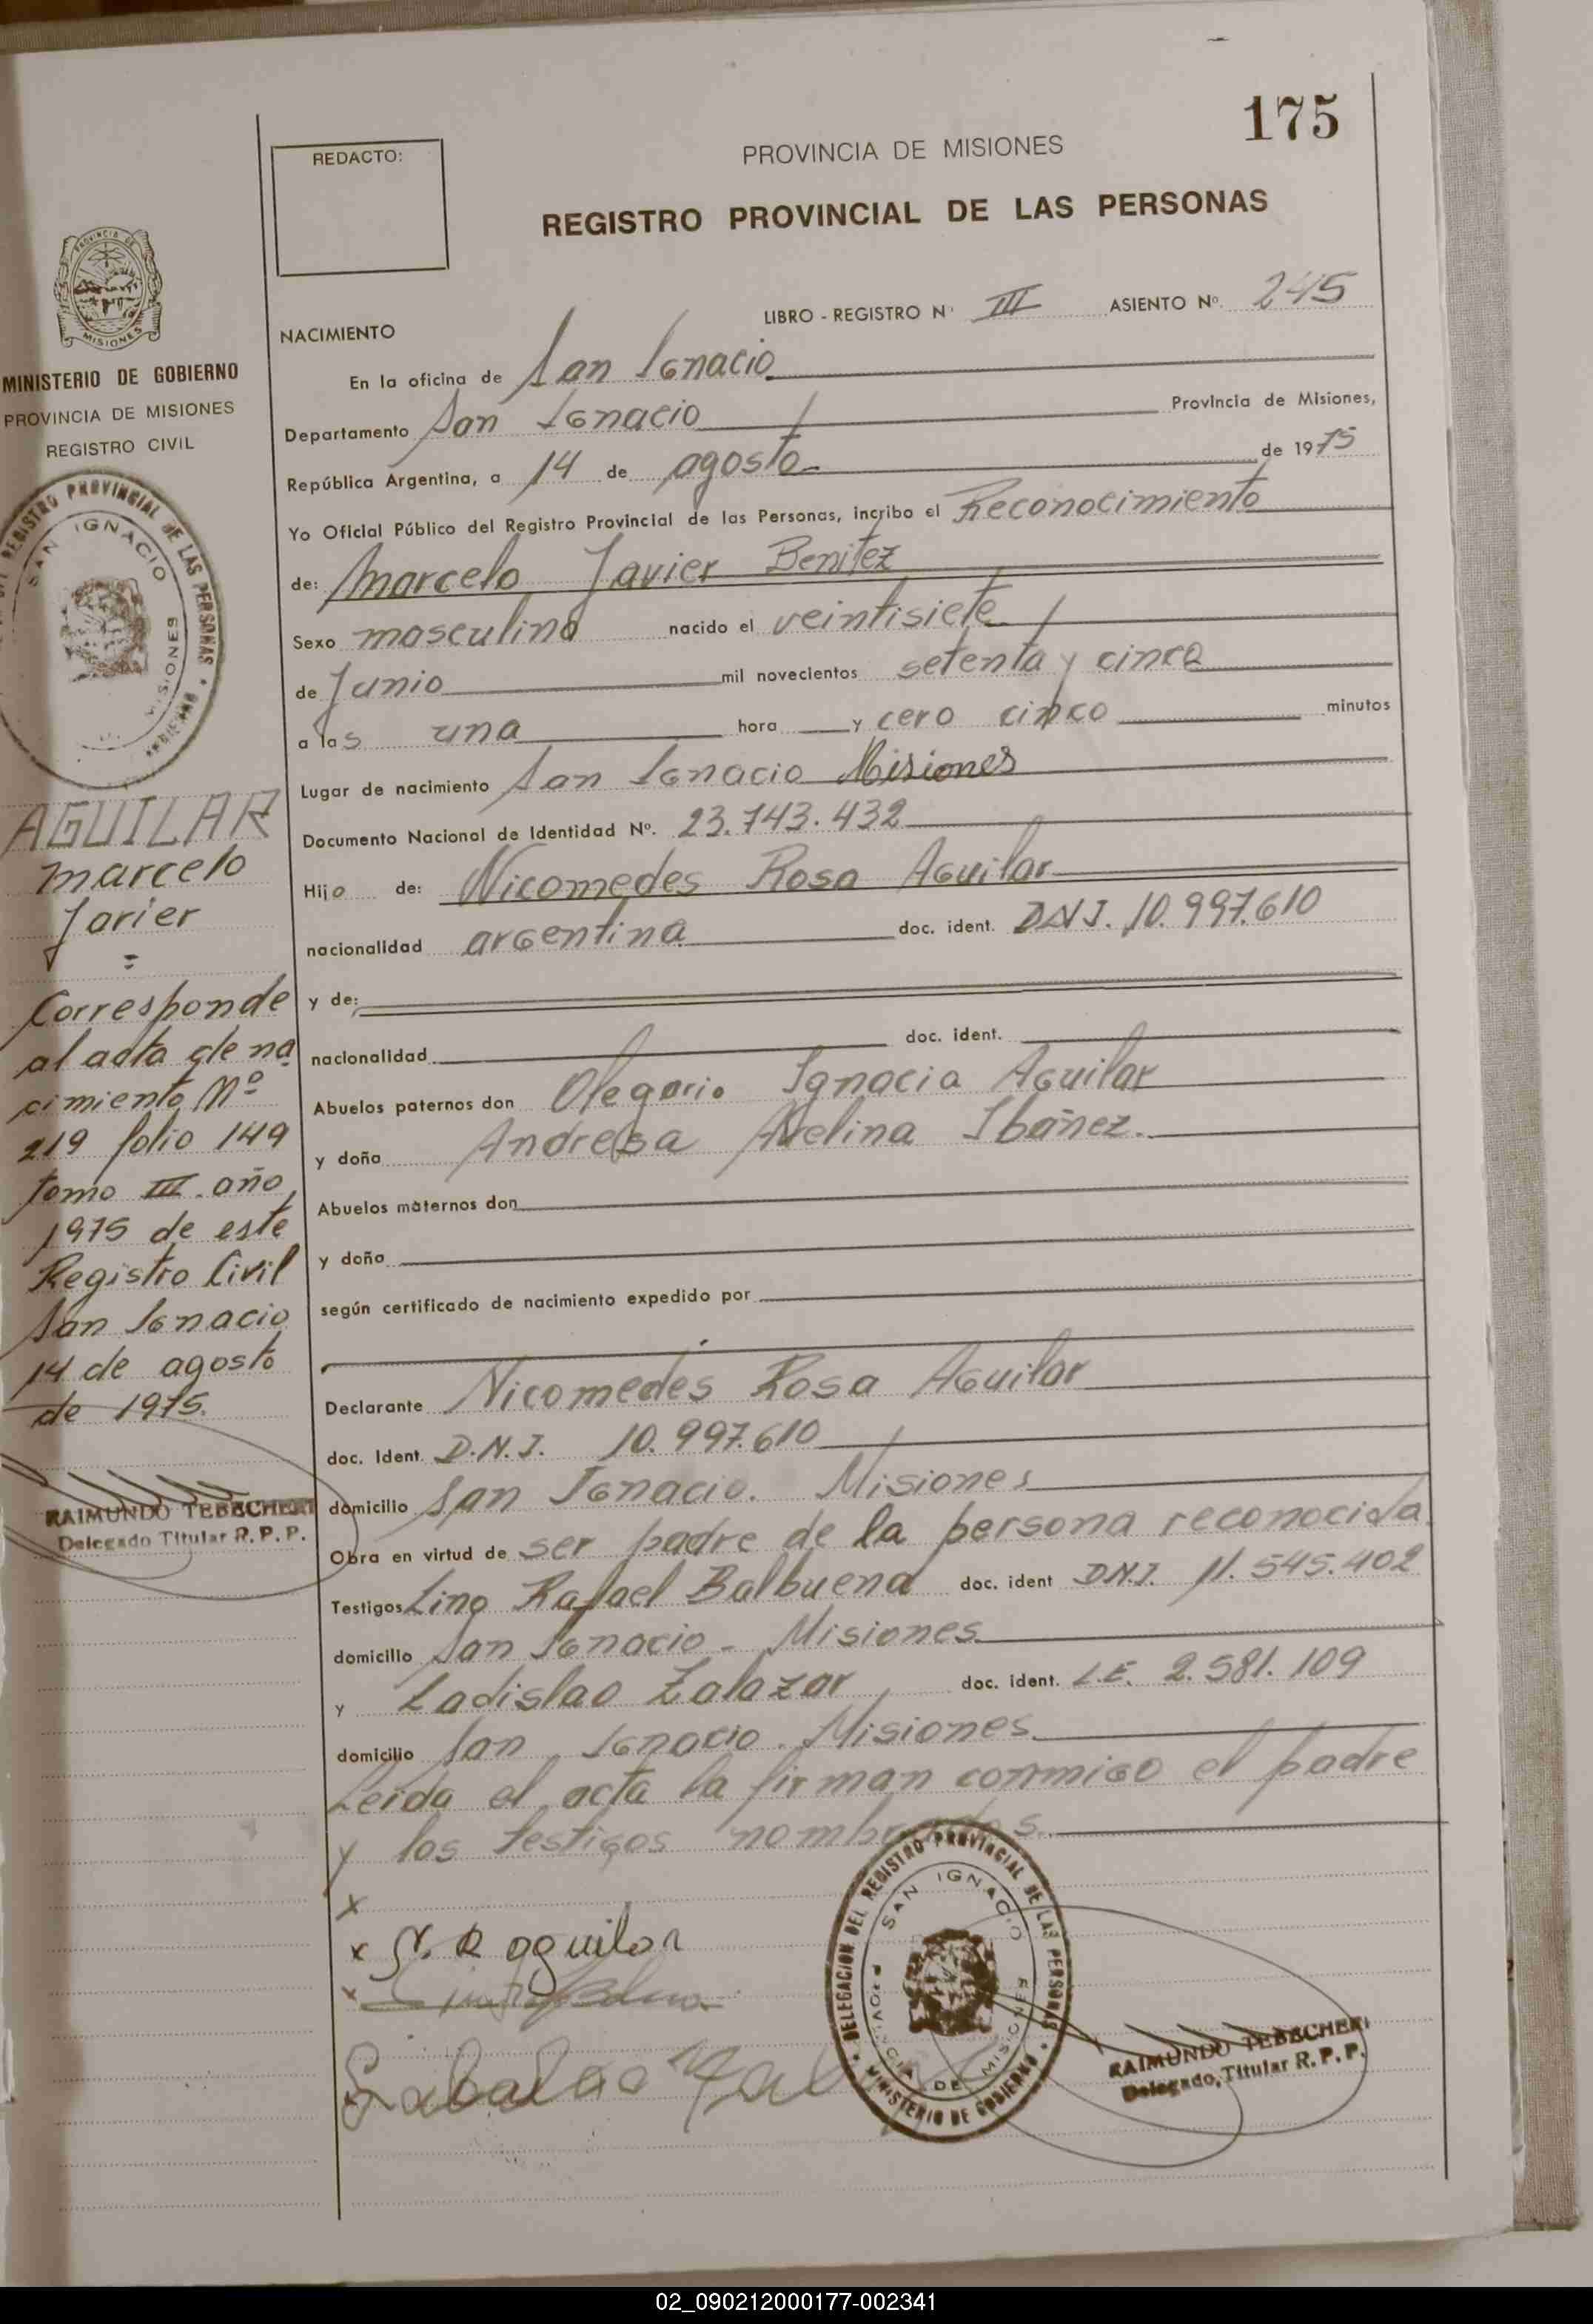 175
REDACTO:
PROVINCIA DE MISIONES
REGISTRO PROVINCIAL DE LAS PERSONAS
LIBRO - REGISTRO Nº III ASIENTO Nº. 245
NACIMIENTO
En la oficina de San Ignacio
Departamento San Ignacio Provincia de Misiones,
República Argentina, a 14 de agosto de 1975
Yo Oficial Público del Registro Provincial de las Personas, incribo el Reconocimiento
de: Marcelo Javier Benitez
Sexo masculino nacido el veintisiete
de Junio mil novecientos setenta y cinco
a las una hora y cero cinco minutos
Lugar de nacimiento San Ignacio Misiones
Documento Nacional de Identidad Nº. 23.743.432
Hijo de: Nicomedes Rosa Aguilar
nacionalidad argentina doc. ident. DNI. 10.997.610
y de:
nacionalidad doc. ident.
Abuelos paternos don Olegario Ignacia Aguilar
y doña Andresa Avelina Ibáñez.
Abuelos maternos don
y doña
según certificado de nacimiento expedido por
Declarante Nicomedes Rosa Aguilar
doc. Ident. D.N.I. 10.997.610
domicilio San Ignacio. Misiones
Obra en virtud de ser padre de la persona reconocida.
Testigos Lino Rafael Balbuena doc. ident D.N.I. 11.545.402
domicilio San Ignacio - Misiones
y Ladislao Zalazar doc. ident. L.E. 2.581.109
domicilio San Ignacio. Misiones
Leida el acta la firman conmigo el padre
y los testigos nombrados.
x
x N. R aguilar
x
DELEGACION DEL REGISTRO PROVINCIAL DE LAS PERSONAS
MINISTERIO DE GOBIERNO
SAN IGNACIO
PROVINCIA DE MISIONES
RAIMUNDO TEBECHERI
Delegado Titular R. P. P.
PROVINCIA DE
MISIONES
MINISTERIO DE GOBIERNO
PROVINCIA DE MISIONES
REGISTRO CIVIL
REGISTRO PROVINCIAL DE LAS PERSONAS
SAN IGNACIO
MISIONES
AGUILAR
Marcelo
Javier
=
Corresponde
al acta de na
cimiento Nº
219 folio 149
tomo III. año
1975 de este
Registro Civil
San Ignacio
14 de agosto
de 1975.
RAIMUNDO TEBECHERI
Delegado Titular R. P. P.
02_090212000177-002341